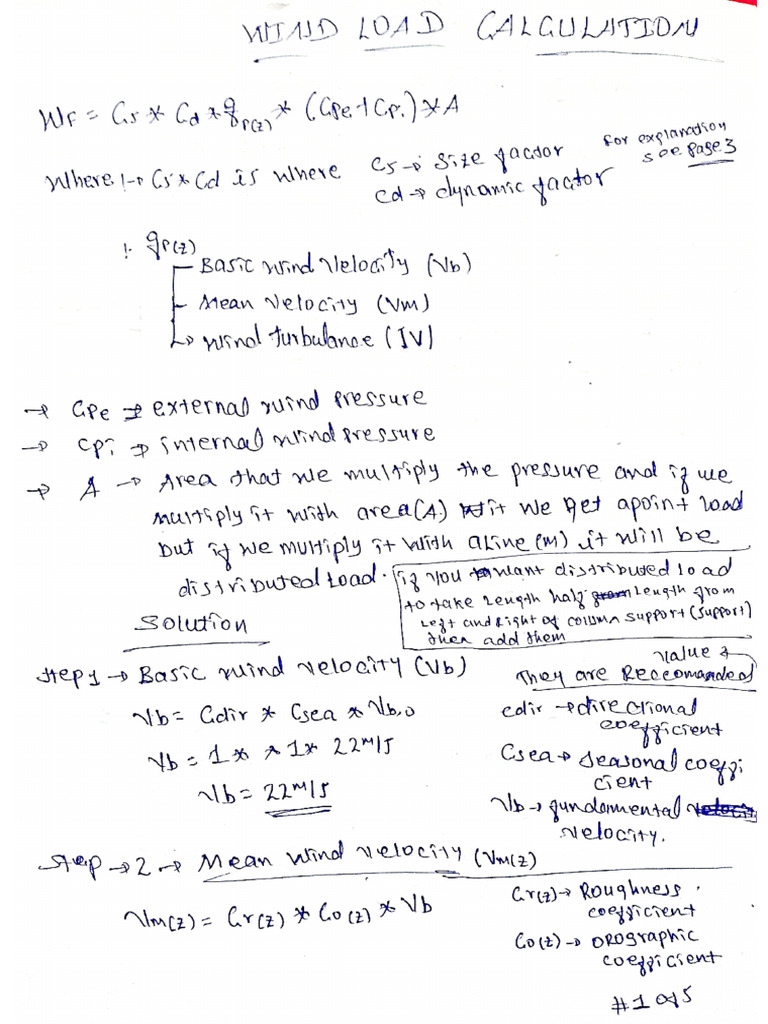 WIND LOAD CALCULATION
WF = Cs * Cd * qp(z) * (Cpe + Cpi) * A
Where :-> Cs * Cd is where Cs -> size factor
for explanation
see page 3
Cd -> dynamic factor
!. qp(z)
Basic wind velocity (Vb)
Mean velocity (Vm)
-> wind turbulance (IV)
-> Cpe => external wind pressure
-> Cpi => internal wind pressure
-> A -> Area that we multiply the pressure and if we
multiply it with area (A) it we get a point load
but if we multiply it with a line (m) it will be
distributed load.
if you want distributed load
to take length half length from
left and right of column support (support)
then add them
Solution
Step 1 -> Basic wind velocity (Vb)
value
They are Reccomanded
Vb = Cdir * Csea * Vb,0
Vb = 1 * 1 * 22 m/s
Vb = 22 m/s
cdir -> directional
coefficient
Csea -> seasonal coeffi
cient
Vb -> fundamental
velocity.
Step -> 2 -> Mean wind velocity (Vm(z))
Vm(z) = Cr(z) * Co(z) * Vb
Cr(z) -> Roughness
coefficient
Co(z) -> orographic
coefficient
#1 of 5